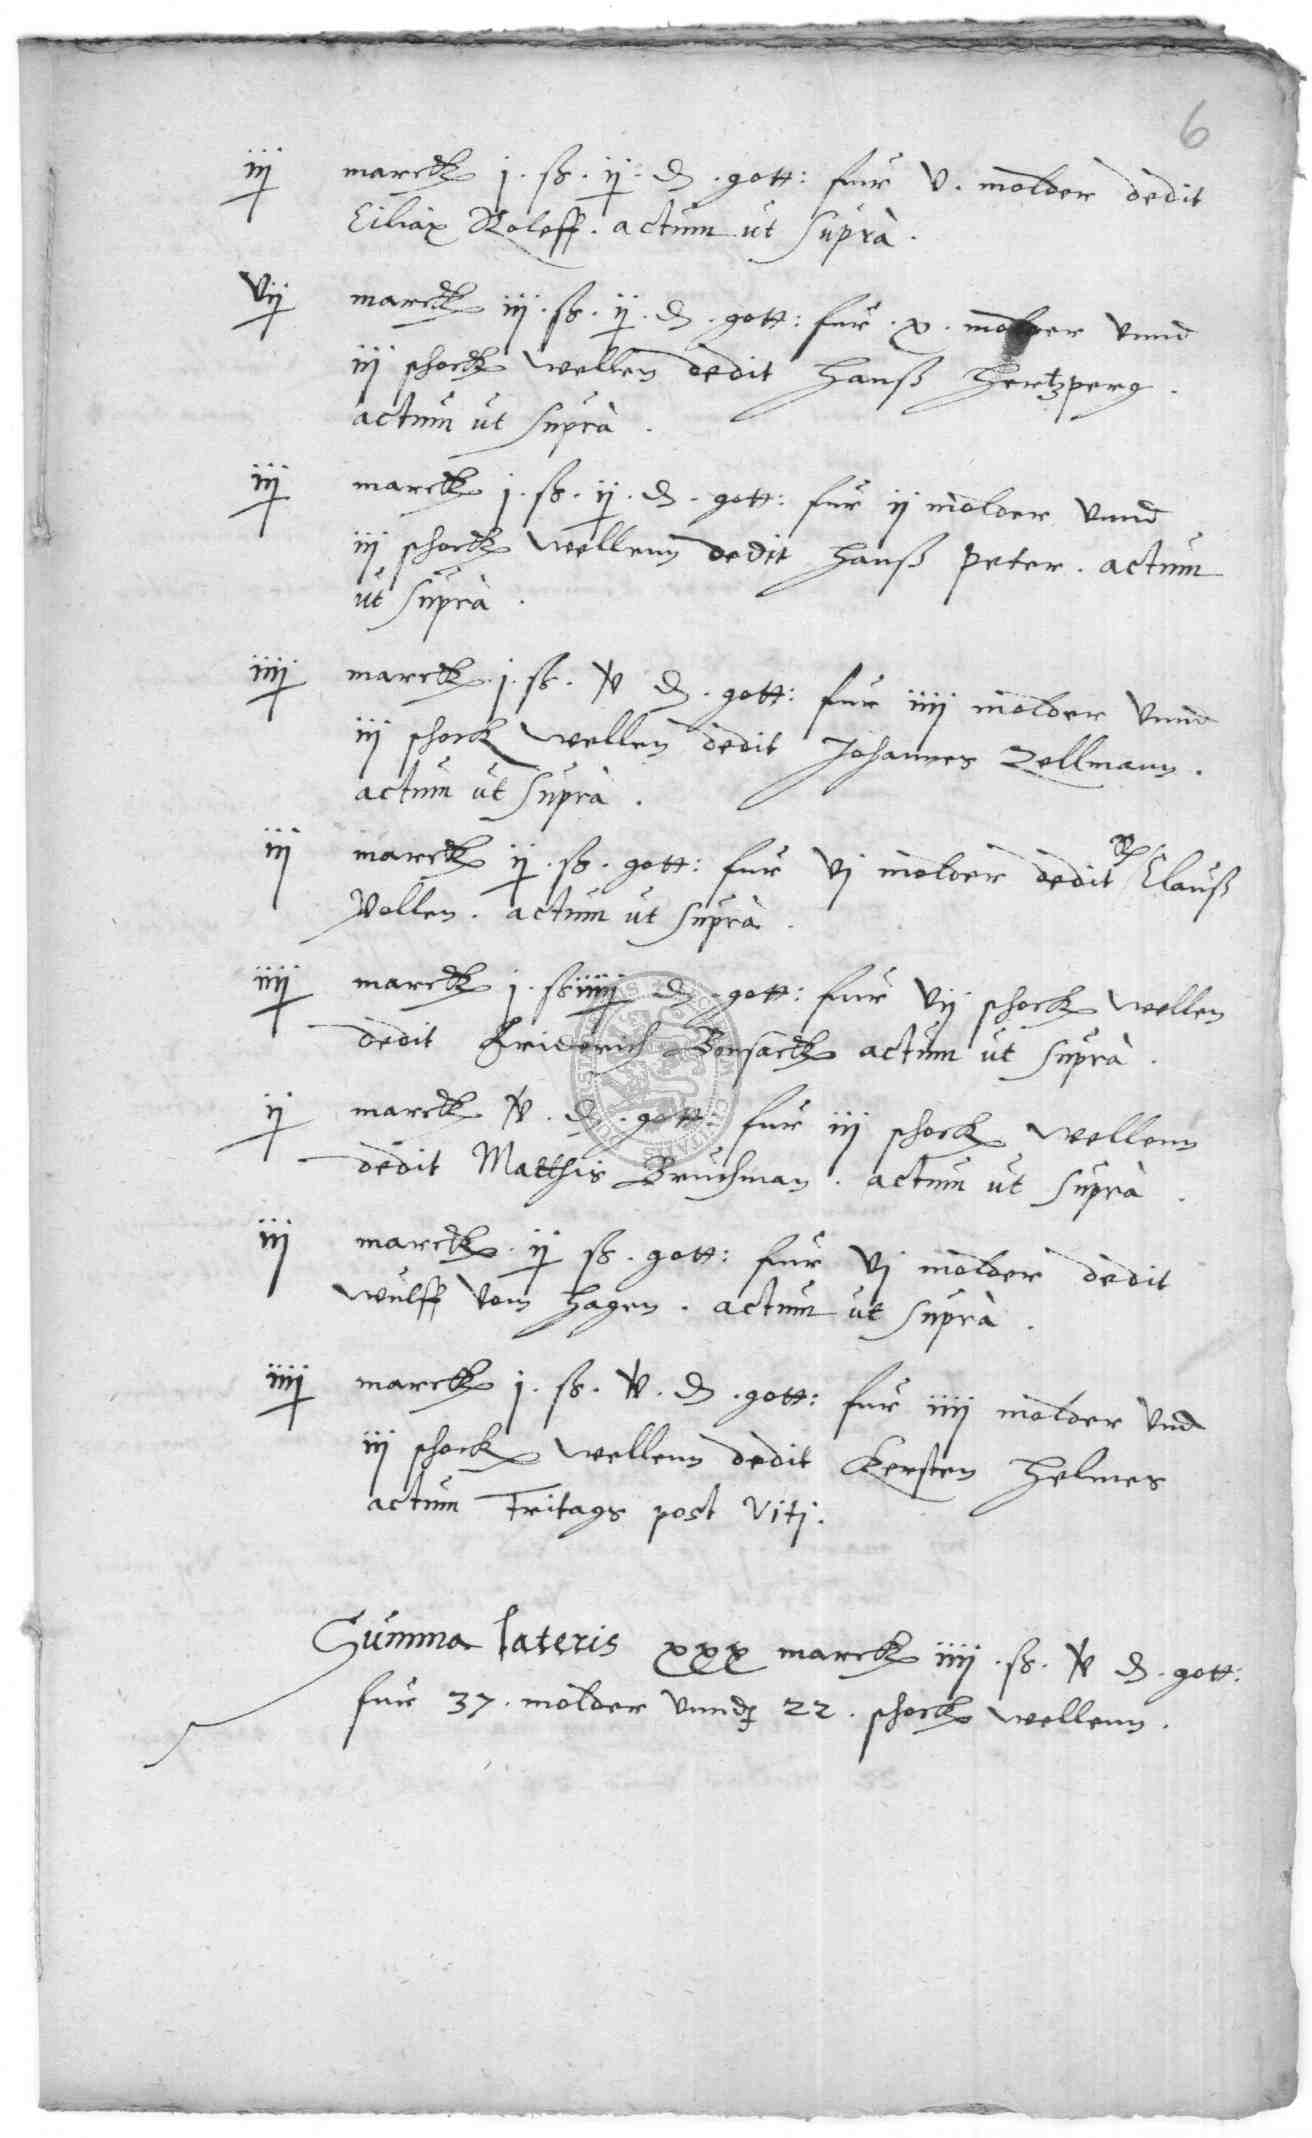 6
iij marck j. ß. ij. ₰. gott: fur v. molder dedit
Ciliax Roleff. actum ut supra.
vij marck iij. ß. ij. ₰. gott: fur. x. molder vnnd
iij schock wellen dedit Hanß Hertzperg.
actum ut supra.
iij marck j. ß. ij. ₰. gott: fur ij molder vnnd
iij schock wellenn dedit Hanß Peter. actum
ut supra.
iiij marck. j. ß. v ₰. gott: fur iiij molder vnnd
iij schock wellen dedit Johannes Zellmann.
actum ut supra.
iij marck ij. ß. gott: fur vj molder dedit Clauß
Vollen. actum ut supra.
iiij marck j. ß iiiij ₰. gott: fur vij schock wellen
dedit Friderich Bonsack actum ut supra.
ij marck v. ₰. gott. fur iij schock wellenn
dedit Matthis Bruchman. actum ut supra.
iij marck. ij ß. gott: fur vj molder dedit
Wulff vom Hagen. actum ut supra.
iiij marck j. ß. v. ₰. gott: fur iiij molder vnd
iij schock wellenn dedit Kersten Helmes
actum Fritags post Viti.
Summa lateris xxx marck iiij. ß. v ₰. gott:
fur 37. molder vnnd 22. schock wellenn.